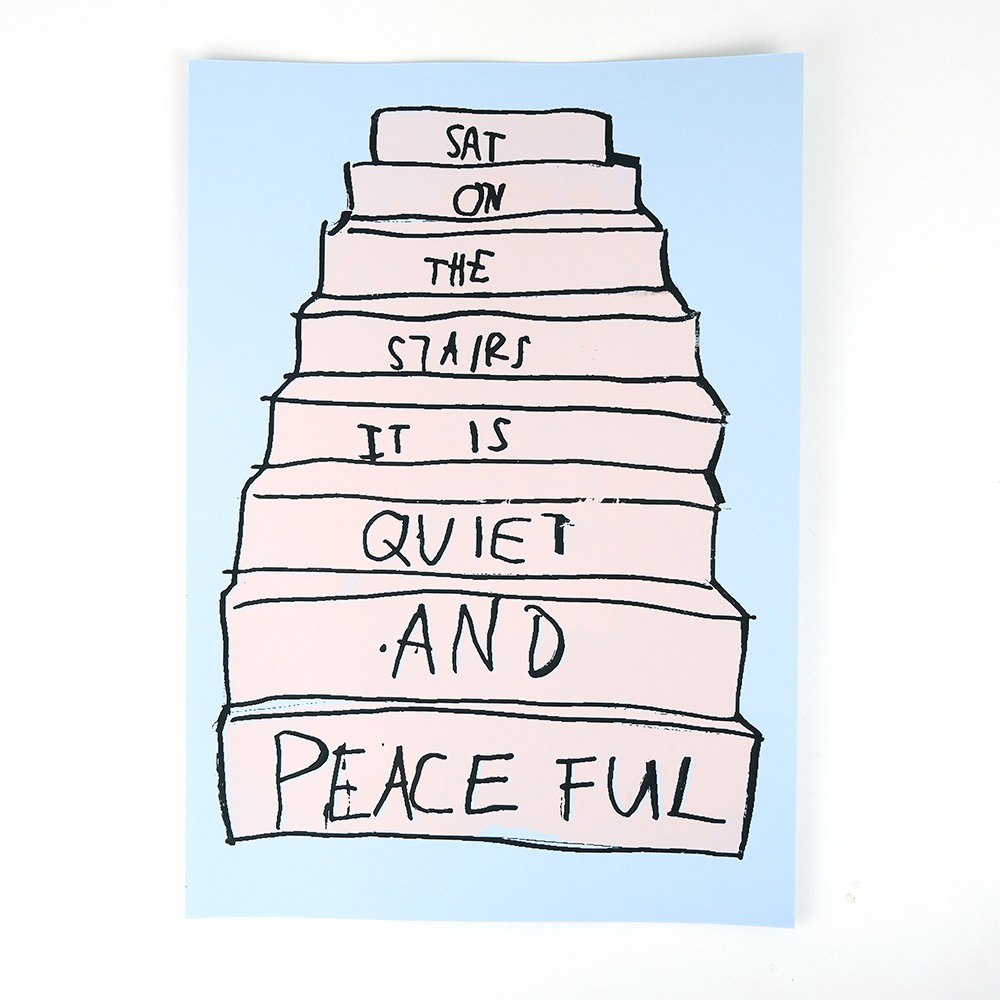 SAT
ON
THE
STAIRS
IT IS
QUIET
AND
PEACEFUL